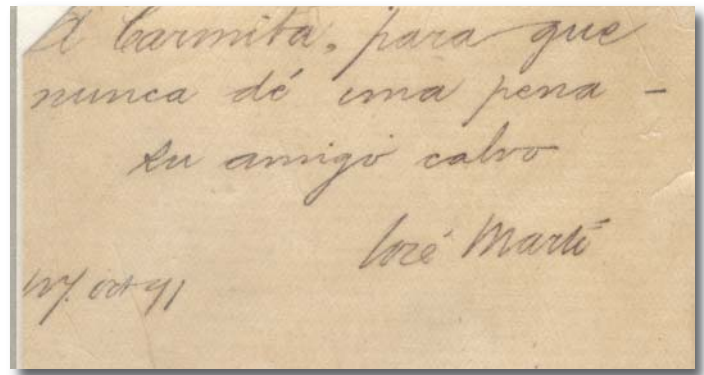 A Carmita, para que
nunca dé una pena –
su amigo calvo
José Martí
NY. oct 91